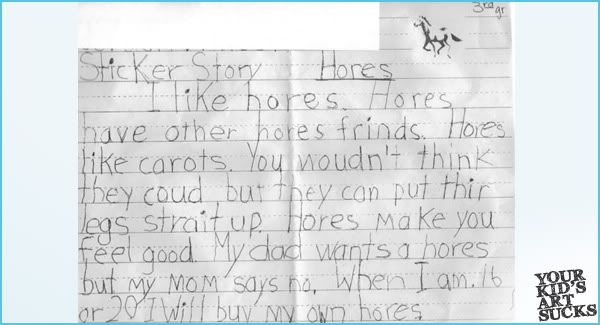 3rd gr
Sticker Story Hores
I like hores. Hores
have other hores frinds. Hores
like carots. You woudn't think
they coud but they can put thir
legs strait up. Hores make you
feel good. My dad wants a hores
but my mom says no. When I am 16
or 20 I will buy my own hores.
YOUR
KID'S
ART
SUCKS